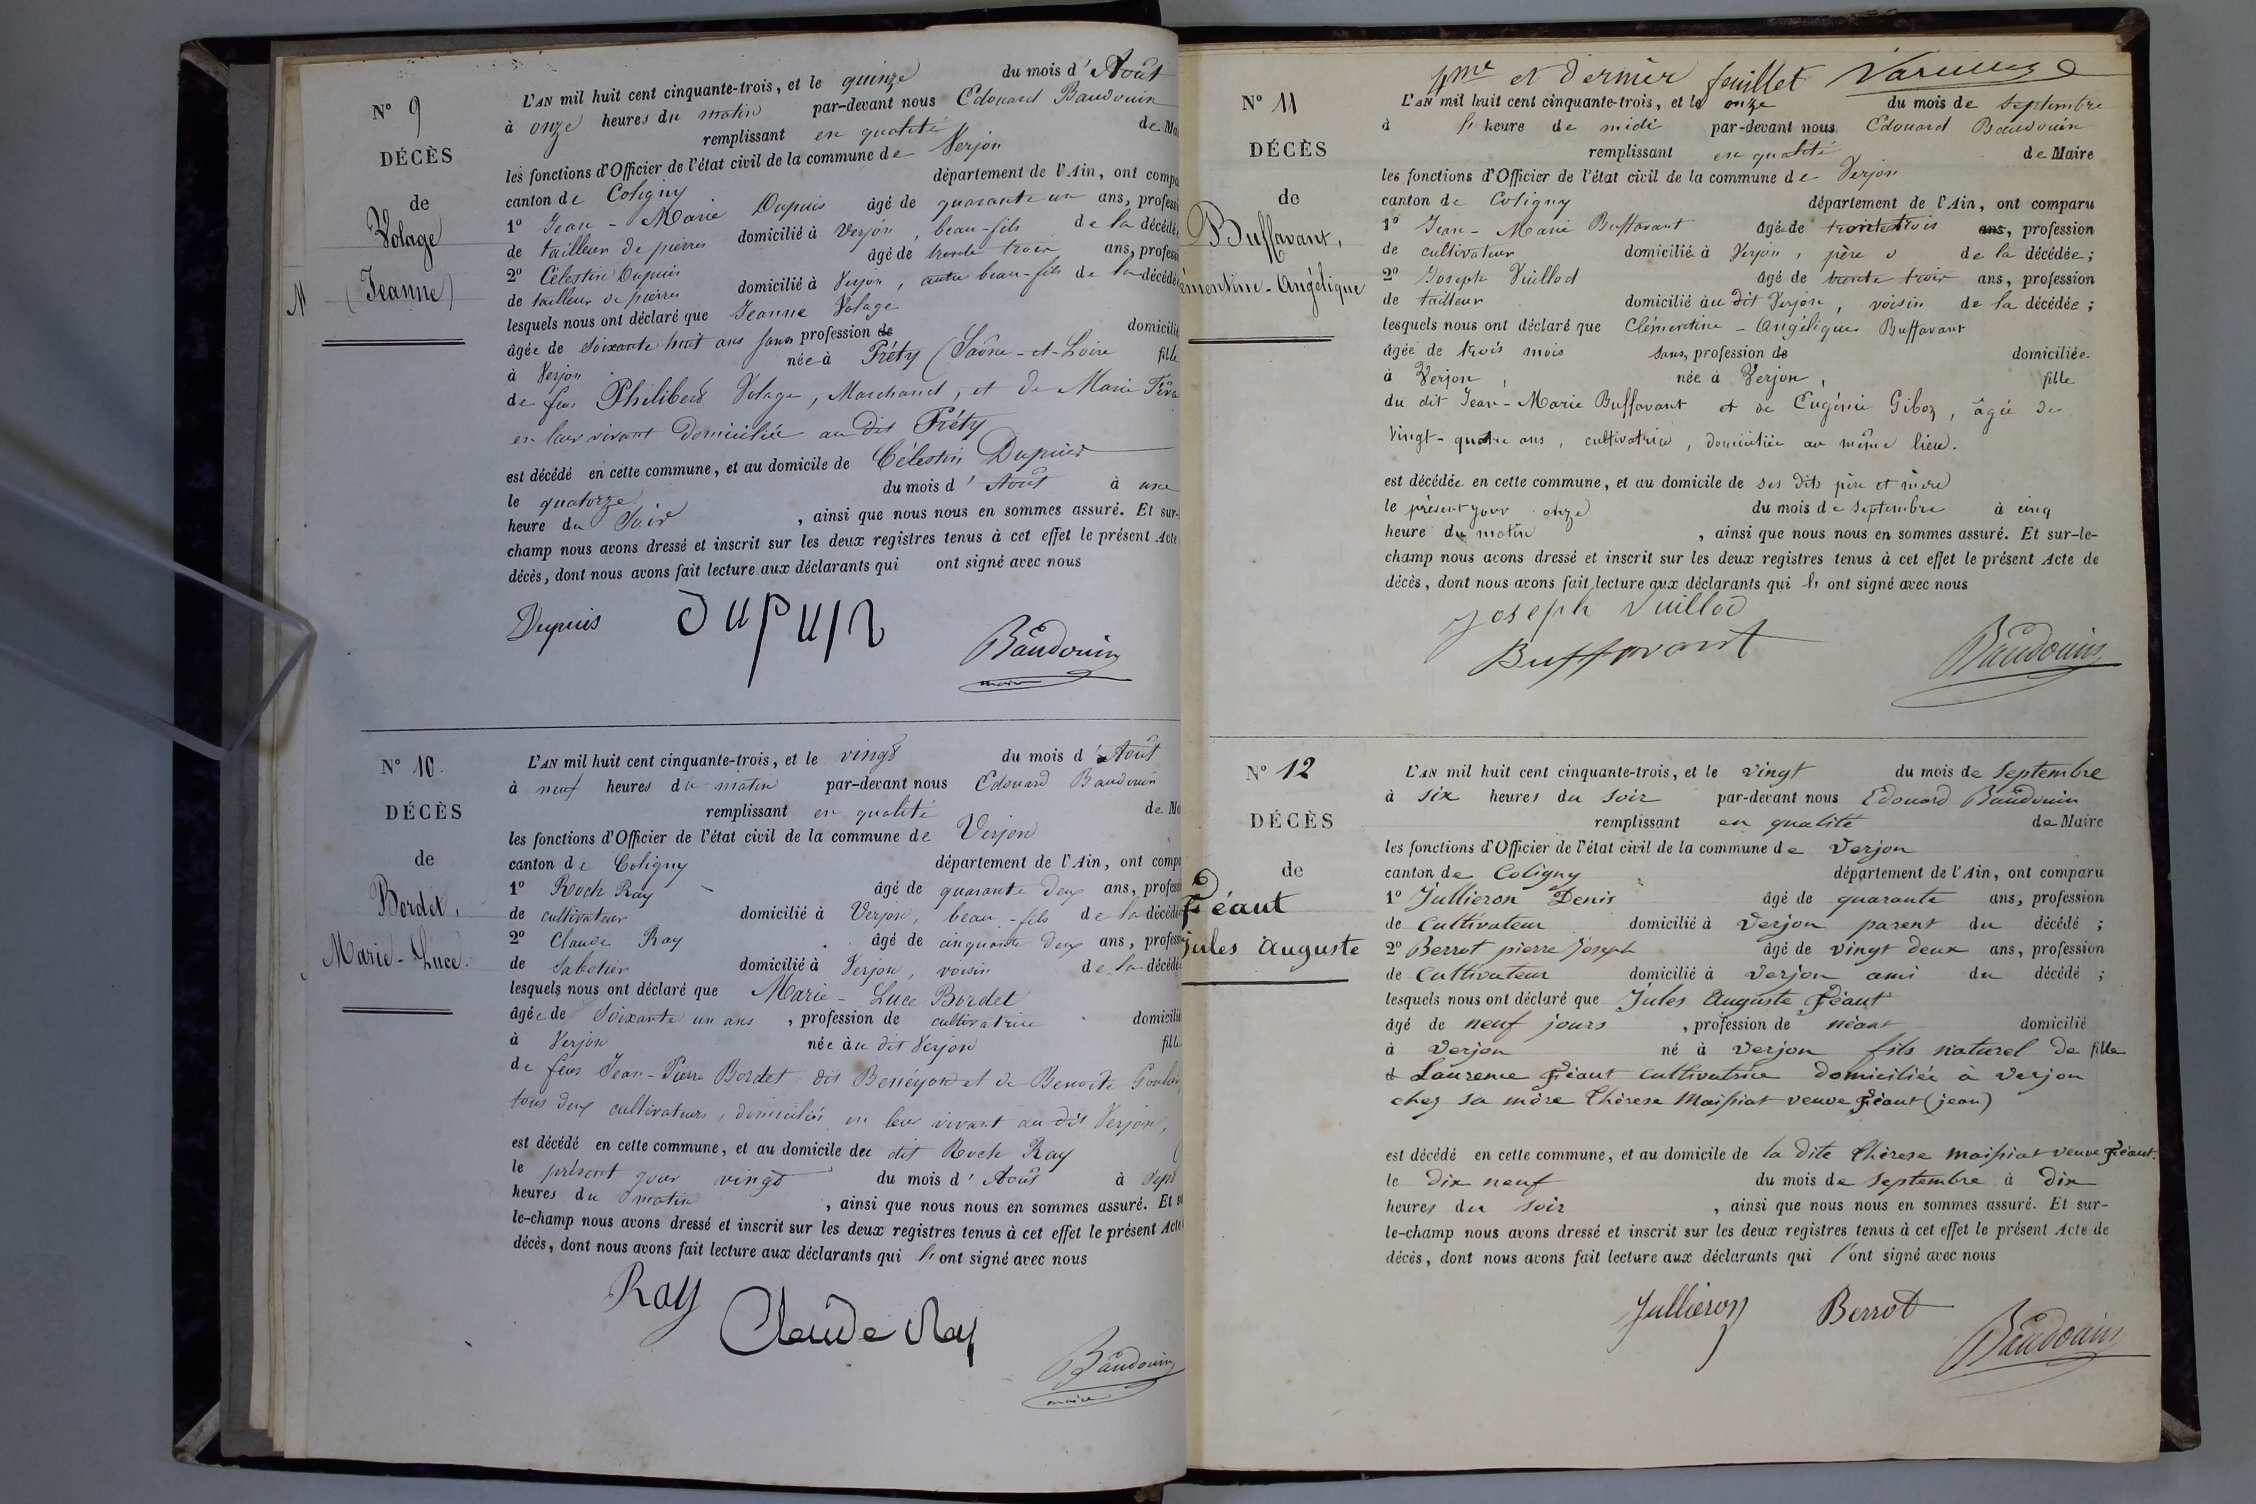 N° 9
DÉCÈS
de
Volage
(Jeanne)
N
L'AN mil huit cent cinquante-trois, et le quinze du mois d'Août
à onze heures du matin par-devant nous Edouard Baudouin
remplissant en qualité de Ma
les fonctions d'Officier de l'état civil de la commune de Verjon
canton de Coligny département de l'Ain, ont compa
1° Jean-Marie Dupuis âgé de quarante un ans, professi
de tailleur de pierres domicilié à Verjon, beau-fils de la décédée
2° Célestin Dupuis âgé de trente trois ans, professi
de tailleur de pierres domicilié à Verjon, autre beau-fils de la décédée
lesquels nous ont déclaré que Jeanne Volage
âgée de soixante huit ans sans profession de domicilié
à Verjon née à Préty (Saône-et-Loire fille
de feus Philibert Volage, Marchand, et de Marie
en leur vivant domiciliés au dit Préty
est décédé en cette commune, et au domicile de Célestin Dupuis
le quatorze du mois d'Août à une
heure du Soir, ainsi que nous nous en sommes assuré. Et sur-
champ nous avons dressé et inscrit sur les deux registres tenus à cet effet le présent Acte
décès, dont nous avons fait lecture aux déclarants qui ont signé avec nous
Dupuis Dupuis
Baudouin
maire
N° 10
DÉCÈS
de
Bordet,
Marie-Luce.
L'AN mil huit cent cinquante-trois, et le vingt du mois d'Août
à neuf heures du matin par-devant nous Edouard Baudouin
remplissant en qualité de Ma
les fonctions d'Officier de l'état civil de la commune de Verjon
canton de Coligny département de l'Ain, ont compa
1° Roch Ray âgé de quarante deux ans, professi
de cultivateur domicilié à Verjon, beau-fils de la décédée
2° Claude Ray âgé de cinquante deux ans, professi
de Sabotier domicilié à Verjon, voisin de la décédée
lesquels nous ont déclaré que Marie-Luce Bordet
âgée de soixante un ans, profession de cultivatrice domicilié
à Verjon née au dit Verjon fille
de feus Jean-Pierre Bordet dit et de Benoite
tous deux cultivateurs, domiciliés en leur vivant au dit Verjon,
est décédé en cette commune, et au domicile du dit Roch Ray
le présent jour vingt du mois d'Août à sept
heures du matin, ainsi que nous nous en sommes assuré. Et su
le-champ nous avons dressé et inscrit sur les deux registres tenus à cet effet le présent Acte
décès, dont nous avons fait lecture aux déclarants qui l'ont signé avec nous
Ray
Claude Ray
Baudouin
maire
4me et dernier feuillet
N° 11
DÉCÈS
de
Buffavant,
émentine-Angélique
L'AN mil huit cent cinquante-trois, et le onze du mois de septembre
à l' heure de midi par-devant nous Edouard Baudouin
remplissant en qualité de Maire
les fonctions d'Officier de l'état civil de la commune de Verjon
canton de Coligny département de l'Ain, ont comparu
1° Jean-Marie Buffavant âgé de trente trois ans, profession
de cultivateur domicilié à Verjon, père de la décédée;
2° Joseph Vuillod âgé de trente trois ans, profession
de tailleur domicilié au dit Verjon, voisin de la décédée;
lesquels nous ont déclaré que Clémentine-Angélique Buffavant
âgée de trois mois sans profession de domiciliée
à Verjon, née à Verjon, fille
du dit Jean-Marie Buffavant et de Eugénie Giboz, âgée de
vingt-quatre ans, cultivatrice, domiciliée au même lieu.
est décédée en cette commune, et au domicile de ses dits père et mère
le présent jour onze du mois de septembre à cinq
heure du matin, ainsi que nous nous en sommes assuré. Et sur-le-
champ nous avons dressé et inscrit sur les deux registres tenus à cet effet le présent Acte de
décès, dont nous avons fait lecture aux déclarants qui l'ont signé avec nous
Joseph Vuillod
Buffavant
Baudouin
N° 12
DÉCÈS
de
Féaut
Jules Auguste
L'AN mil huit cent cinquante-trois, et le vingt du mois de Septembre
à six heures du soir par-devant nous Edouard Baudouin
remplissant en qualité de Maire
les fonctions d'Officier de l'état civil de la commune de Verjon
canton de Coligny département de l'Ain, ont comparu
1° Jullieron Denis âgé de quarante ans, profession
de Cultivateur domicilié à Verjon parent du décédé;
2° Berrot pierre Joseph âgé de vingt deux ans, profession
de Cultivateur domicilié à Verjon ami du décédé;
lesquels nous ont déclaré que Jules Auguste Féaut
âgé de neuf jours, profession de néant domicilié
à Verjon né à Verjon fils naturel de fille
Laurence Féaut cultivatrice domiciliée à Verjon
chez sa mère Thérese Maissiat veuve Féaut (jean)
est décédé en cette commune, et au domicile de la dite Thérese maissiat veuve Féaut.
le dix neuf du mois de Septembre à Dix
heures du soir, ainsi que nous nous en sommes assuré. Et sur-
le-champ nous avons dressé et inscrit sur les deux registres tenus à cet effet le présent Acte de
décès, dont nous avons fait lecture aux déclarants qui l'ont signé avec nous
Jullieron Berrot
Baudouin